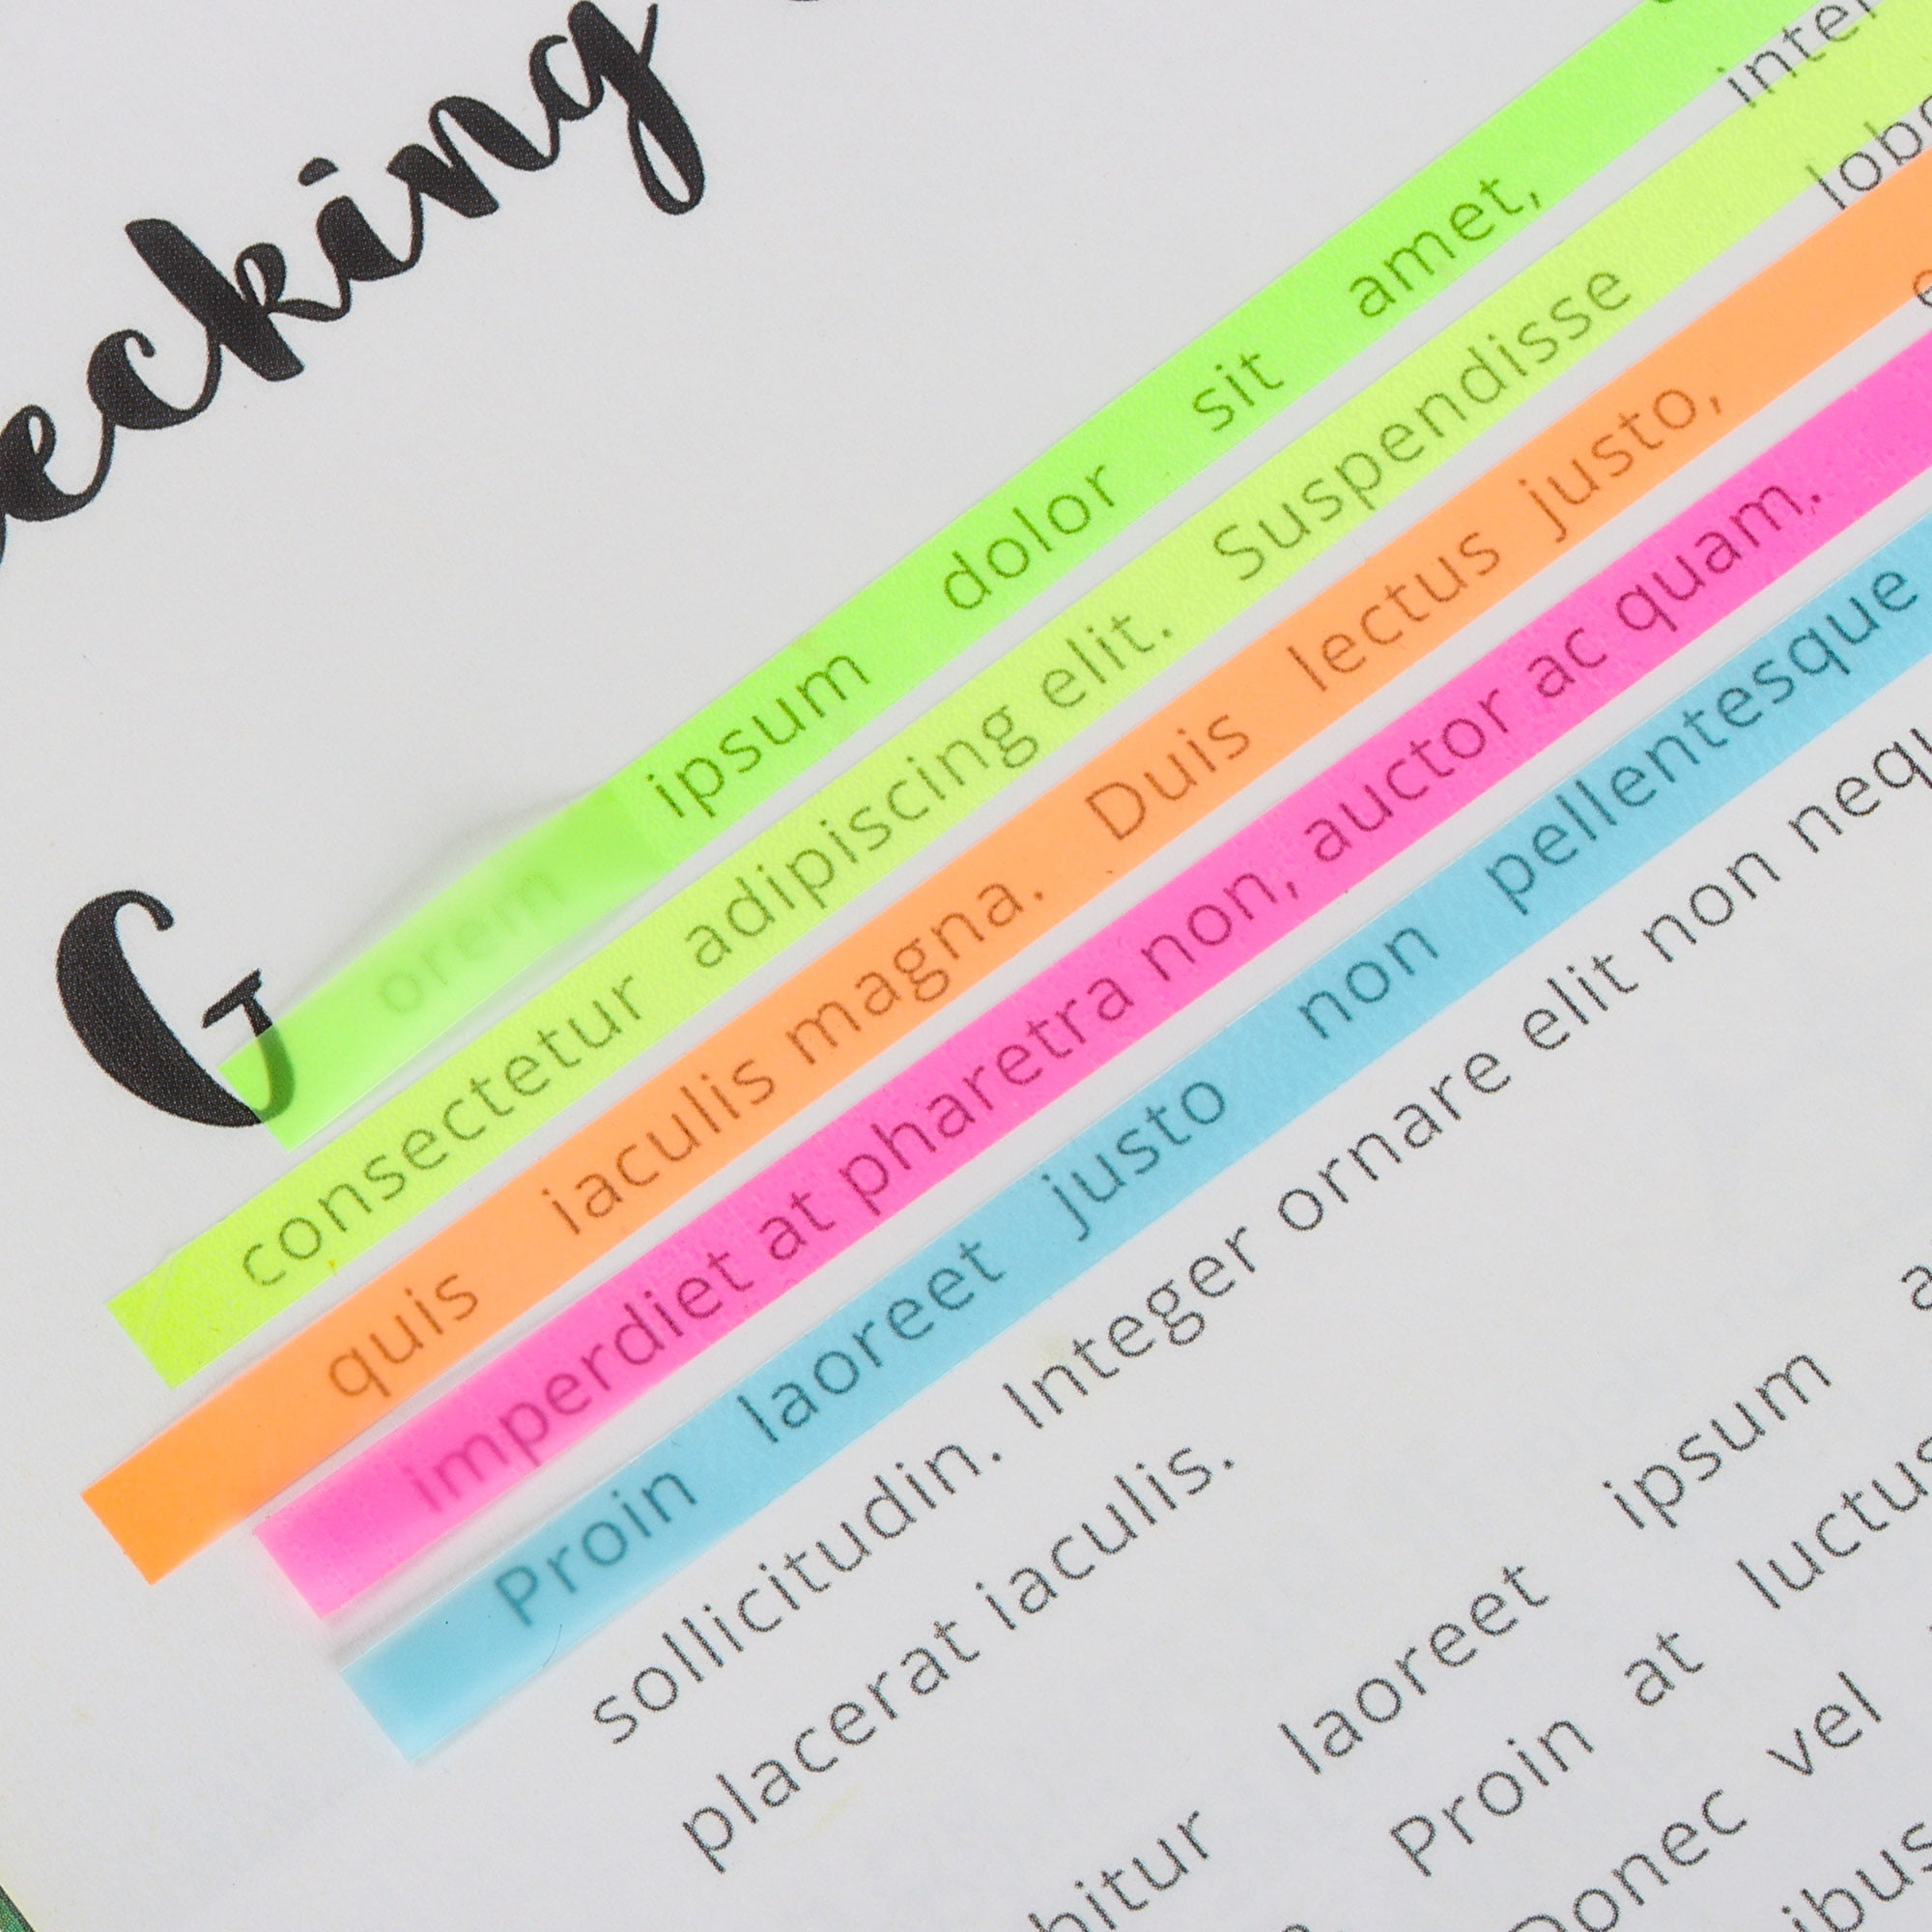 ecking
G orem ipsum dolor sit amet,
consectetur adipiscing elit. Suspendisse inter
quis iaculis magna. Duis lectus justo, lobo
imperdiet at pharetra non, auctor ac quam.
Proin laoreet justo non pellentesque
sollicitudin. Integer ornare elit non nequ
placerat iaculis.
bitur laoreet ipsum a
Proin at luctus
Donec vel
ibus